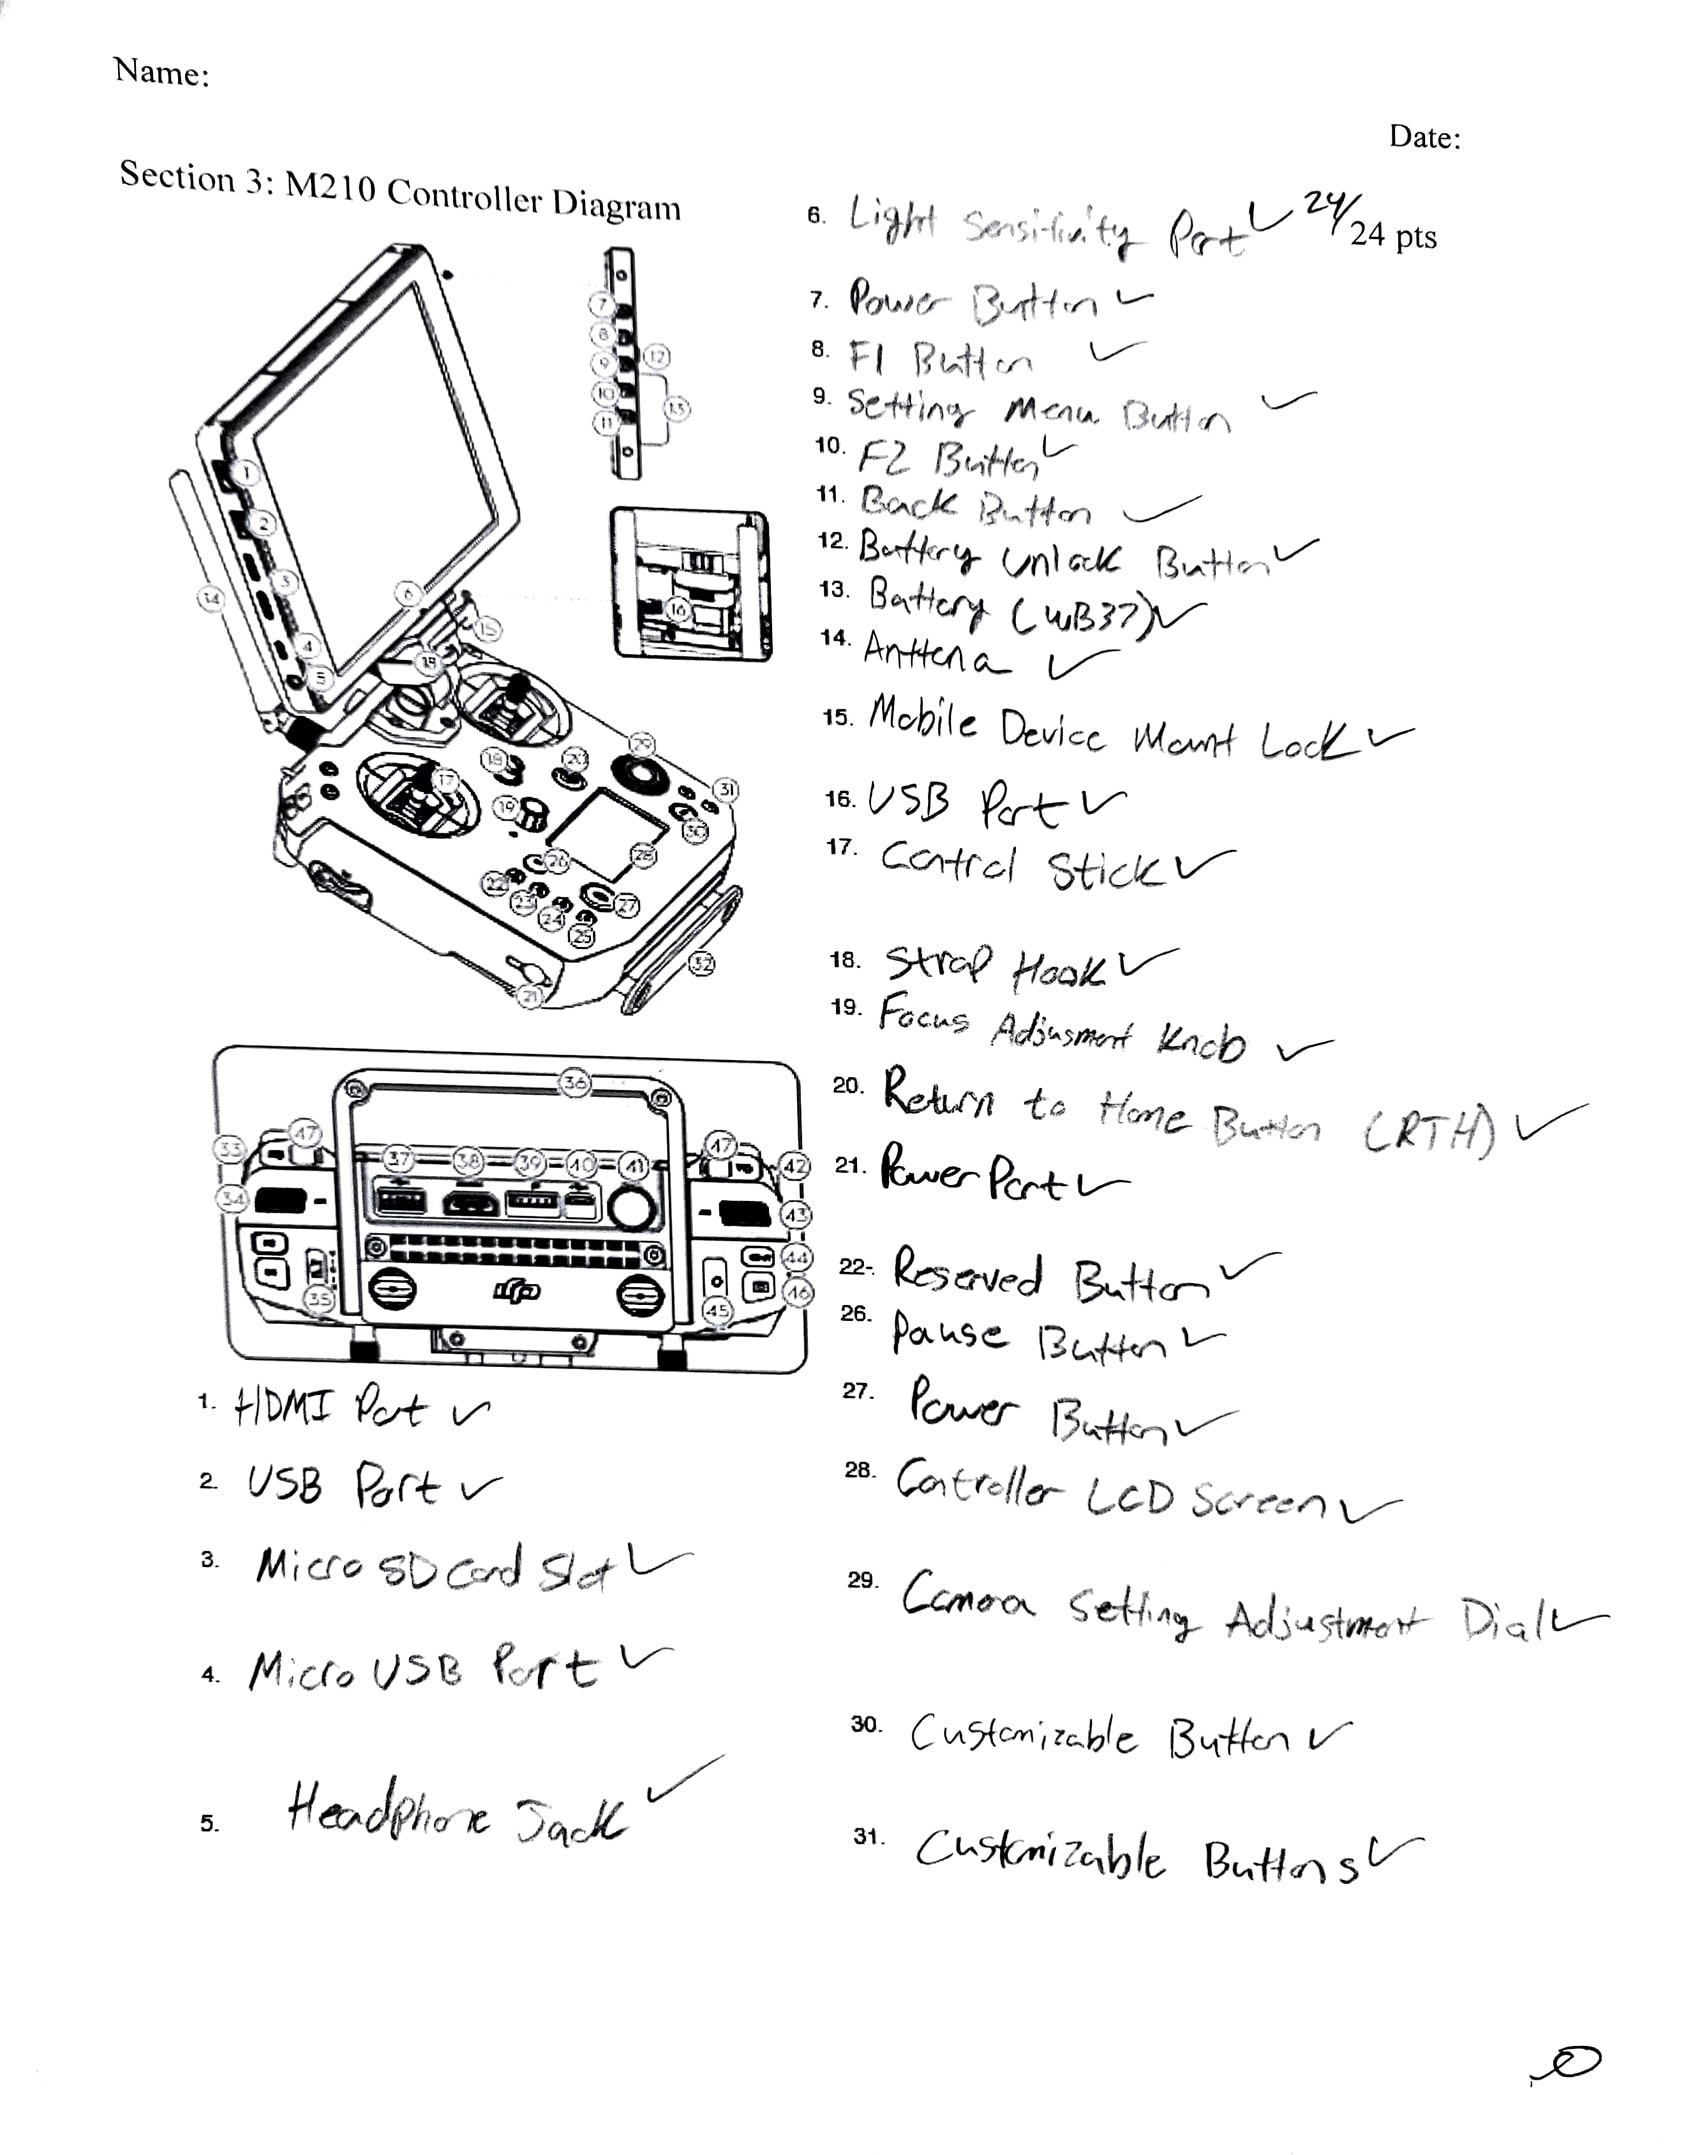 Name:
Date:
Section 3: M210 Controller Diagram
24/24 pts
7
8
9
10
11
12
13
1
2
3
4
5
6
14
15
16
18
17
18
19
20
29
31
30
28
26
22
23
24
25
27
32
21
36
33
47
37
38
39
40
41
47
42
34
43
35
44
45
46
dji
1. HDMI Port ✓
2. USB Port ✓
3. Micro SD Card Slot ✓
4. Micro USB Port ✓
5. Headphone Jack ✓
6. Light Sensitivity Port ✓
7. Power Button ✓
8. F1 Button ✓
9. Setting Menu Button ✓
10. F2 Button ✓
11. Back Button ✓
12. Battery Unlock Button ✓
13. Battery (WB37) ✓
14. Anttena ✓
15. Mobile Device Mount Lock ✓
16. USB Port ✓
17. Control Stick ✓
18. Strap Hook ✓
19. Focus Adjusment Knob ✓
20. Return to Home Button (RTH) ✓
21. Power Port ✓
22-. Reserved Button ✓
26. Pause Button ✓
27. Power Button ✓
28. Controller LCD Screen ✓
29. Camera Setting Adjustment Dial ✓
30. Customizable Button ✓
31. Customizable Buttons ✓